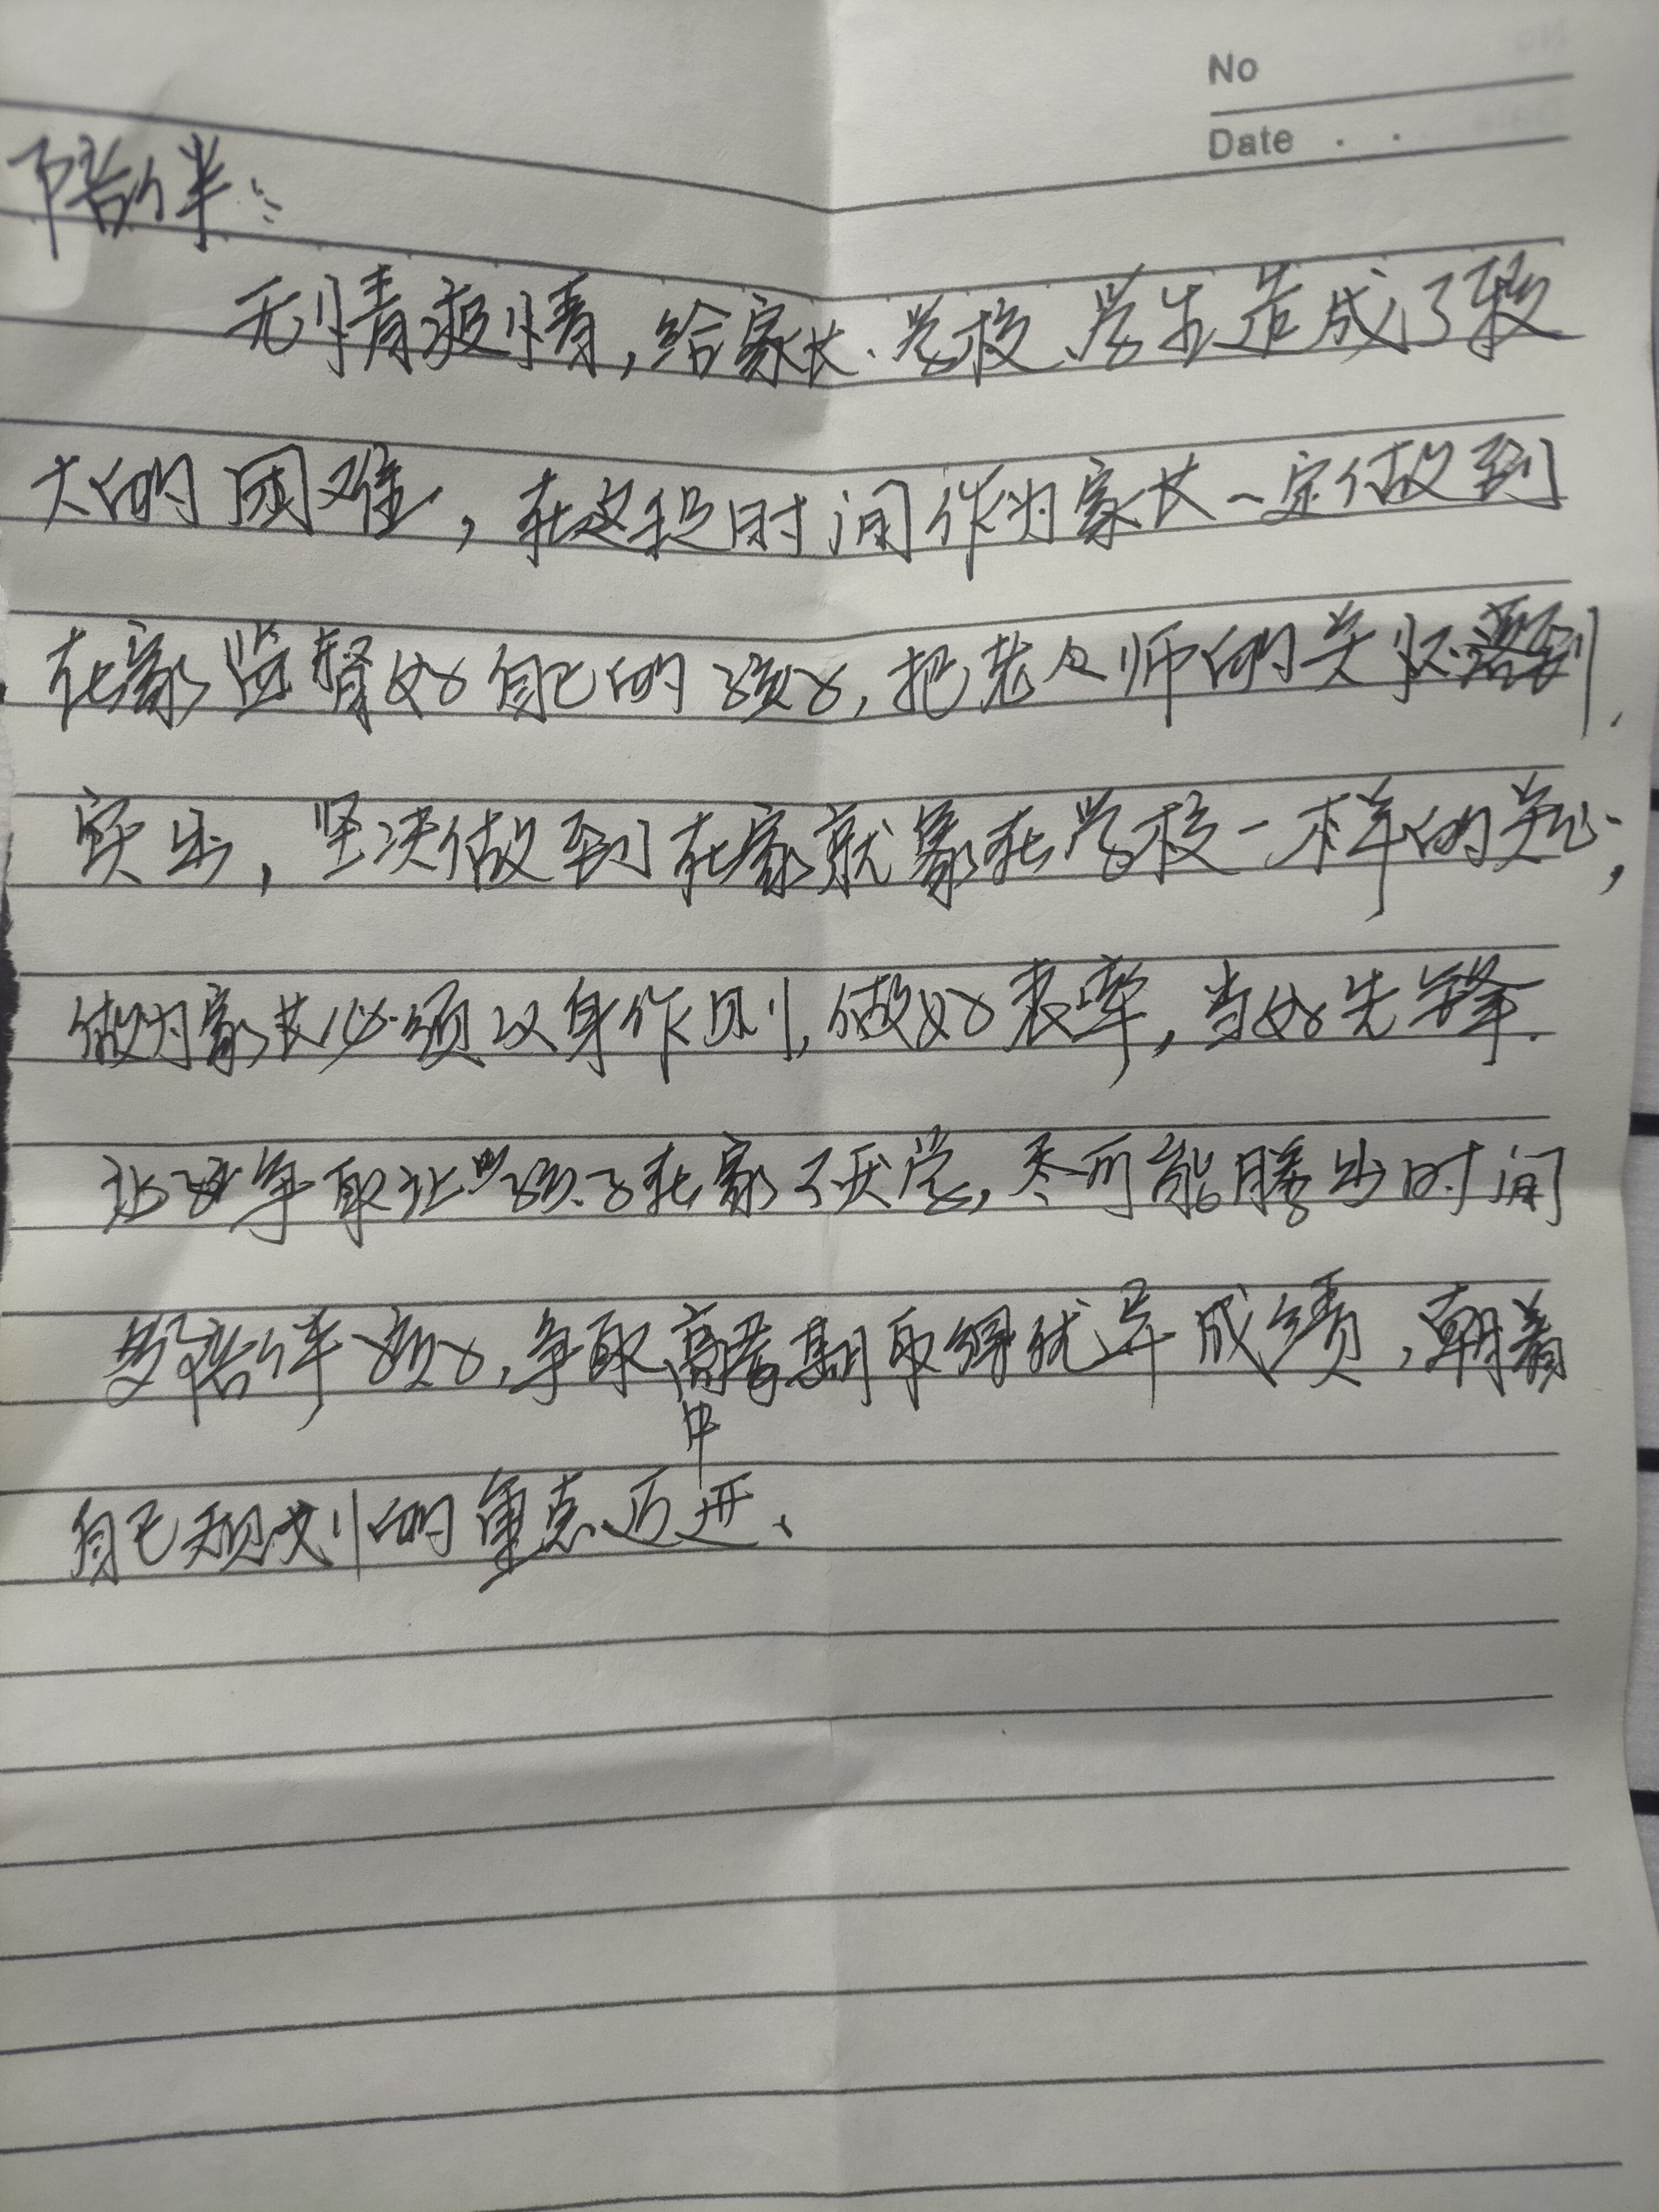 No
Date . .
陪伴:
无情疫情,给家长、学校、学生造成了较
大的困难,在这段时间作为家长一定做到
在家监督好自己的孩子,把老师的关怀落到,
实出,坚决做到在家就象在学校一样的,
做为家长必须以身作则,做好表率,当好先锋.
争取让孩子在家不厌学,尽可能腾出时间
多陪伴孩子,争取高中期取得优异成绩,朝着
自己规划的重点迈进、